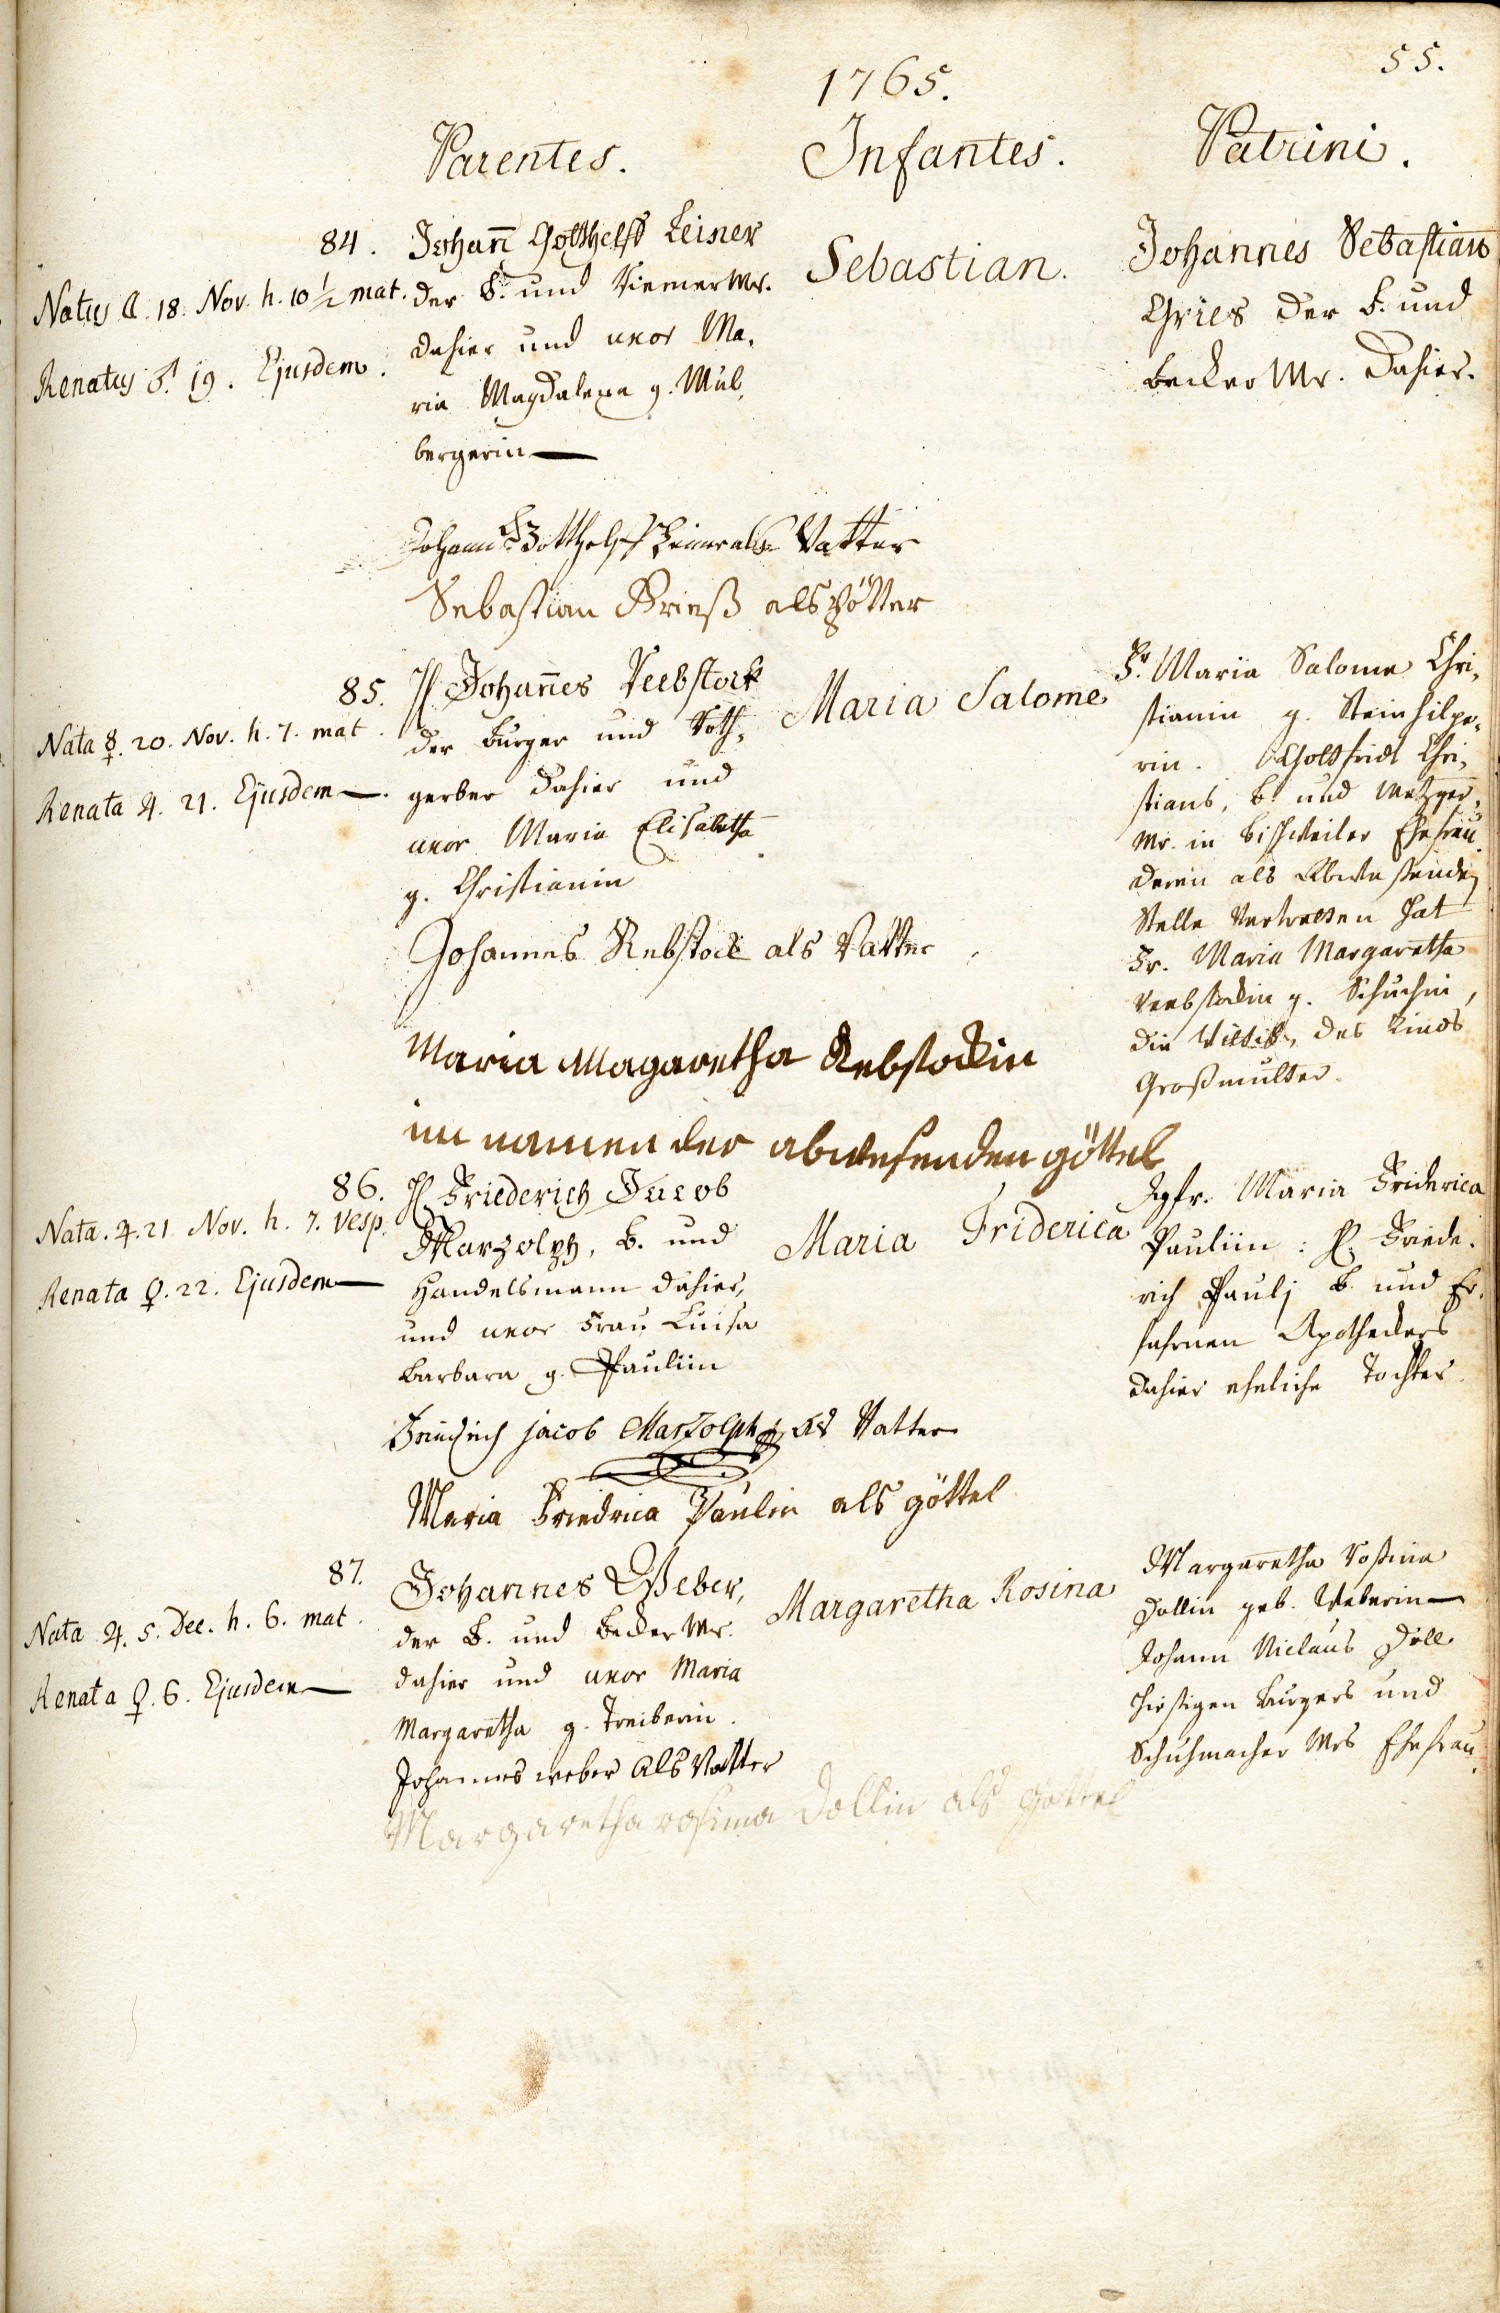 55.
1765.
Parentes. Infantes. Patrini.
84.
Natus ☾. 18. Nov. h. 10 ½ mat.
Renatus ♂. 19. Ejusdem.
Johann̄ Gotthelff Leiner
der B. und Riemer Mr.
dahier und uxor Ma,
ria Magdalena g. Mül,
bergerin —
Sebastian.
Johannes Sebastian
Gries der B. und
Becker Mr. dahier.
Johann Gotthelff Leiner als Vatter
Sebastian Grieß als götter
85.
Nata ☿. 20. Nov. h. 7. mat.
Renata ♃. 21. Ejusdem —.
H Johan̄es Reebstock
der Burger und Roth,
gerber dahier und
uxor Maria Elisabetha
g. Christianin
Maria Salome
Fr. Maria Salome Chri,
stianin g. Steinhilpe,
rin. Gottfridt Chri,
stians, B. und Metzger,
Mr. in Bischweiler Ehefrau.
deren als Abwesende
Stelle Vertretten hat
Fr. Maria Margaretha
Reebstockin g. Schuchin,
die Wittib, des Kinds
Großmutter.
Johannes Rebstock als Vatter
Maria Magaretha Rebstockin
im namen der abwesenden göttel
86.
Nata. ♃. 21 Nov. h. 7. Vesp.
Renata ♀. 22. Ejusdem —
H. Friederich Jacob
Marzolph, B. und
Handelsmann dahier,
und uxor Frau Luisa
Barbara g. Pauliin
Maria Friderica
Jgfr. Maria Friderica
Pauliin: H. Friede.
rich Paulj B. und Er,
fahrnen Apotheckers
dahier eheliche Tochter.
Friedrich jacob Marzolph als Vatter
Maria Friedrica Paulin als göttel
87.
Nata ♃. 5. Dec. h. 6. mat.
Renata ♀. 6. Ejusdem —
Johannes Weber,
der B. und Becker Mr.
dahier und uxor Maria
Margaretha g. Treiberin.
Margaretha Rosina
Margaretha Rosina
Dollin geb. Weberin —
Johann Niclaus Doll
hiesigen Burgers und
Schuhmacher Mrs Ehefrau.
Johannes weber Als Vatter
Margaretha rosina Dollin als göttel